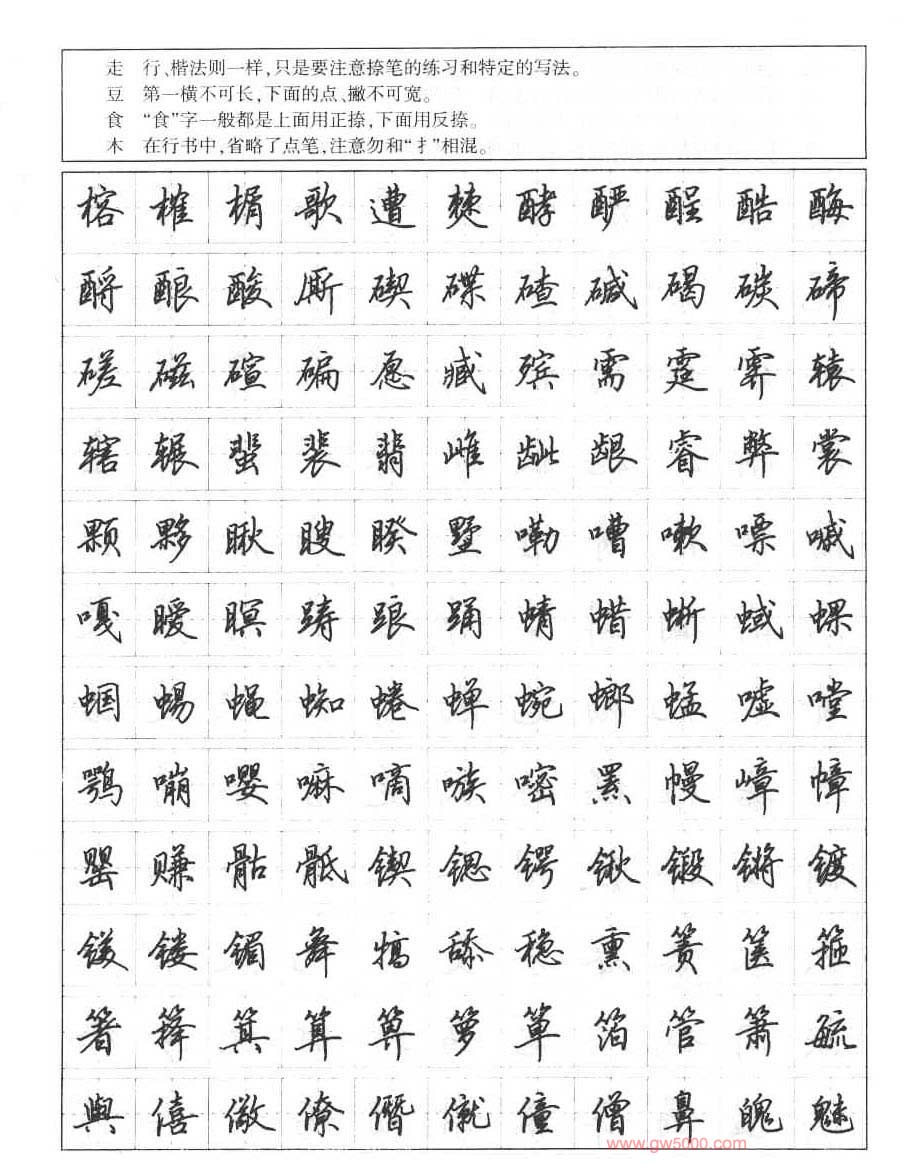 走 行、楷法则一样,只是要注意捺笔的练习和特定的写法。
豆 第一横不可长,下面的点、撇不可宽。
食 “食”字一般都是上面用正捺,下面用反捺。
木 在行书中,省略了点笔,注意勿和“扌”相混。
榕 榷 楣 歌 遭 僰 酵 酽 酲 酷 酶
酹 酿 酸 厮 碶 碟 碴 碱 碣 碳 碲
磋 磁 碹 碥 愿 臧 殡 需 霆 霁 辕
辖 辗 蜚 裴 翡 雌 龇 龈 睿 弊 裳
颗 夥 瞅 瞍 睽 墅 嘞 嘈 嗽 嘌 嘁
嘎 暧 暝 踌 踉 踊 蜻 蜡 蜥 蜮 蜾
蝈 蜴 蝇 蜘 蜷 蝉 蜿 螂 蜢 嘘 嘡
鹗 嘣 嘤 嘛 嘀 嗾 嘧 罴 幔 嶂 幛
罂 赚 骷 骶 锲 锶 锷 锹 锻 锵 镀
镁 镂 镅 舞 犒 舔 稳 熏 箦 箧 箍
箸 箨 箕 算 箅 箩 箪 箔 管 箫 毓
舆 僖 儆 僚 僭 僦 僮 僧 鼻 魄 魅
www.gw5000.com